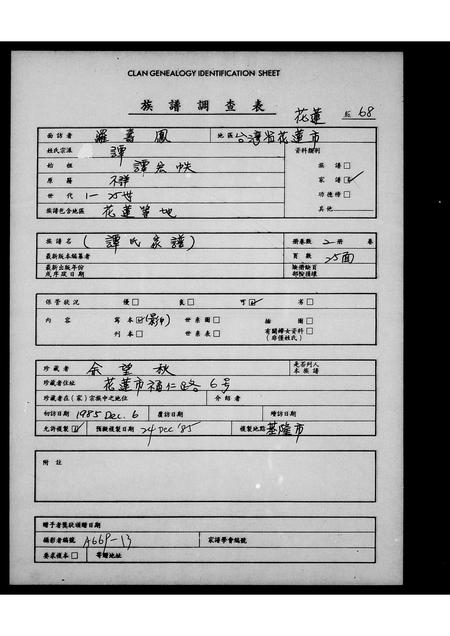 CLAN GENEALOGY IDENTIFICATION SHEET
族譜調查表
花蓮 68
面訪者 羅壽鳳 地區 台灣省花蓮市
姓氏宗派 譚 資料類別
始祖 譚宏帙 族譜□
原籍 不詳 家譜☑
世代 1-25世 功德榜□
族譜包含地區 花蓮等地 其他
族譜名 (譚氏家譜) 冊卷數 二冊 卷
最新版本編纂者 頁數 25面
最新出版年份
或序說日期
保管狀況 優□ 良□ 可☑ 劣□
內容 寫本☑(影印) 世系圖□ 插圖□
刊本□ 世系表□ 有關婦女資料□
(非僅姓氏)
珍藏者 余望秋 是否列入
本族譜
珍藏者住址 花蓮市福仁路6号
珍藏者在(家)宗族中之地位 介紹者
初訪日期 1985 Dec. 6 覆訪日期 續訪日期
允許複製☑ 預擬複製日期 24 Dec '85 複製地點 基隆市
附註
贈予者獎狀頒贈日期
攝影者編號 A669-13 家譜學會編號
要求複本□ 寄贈地址